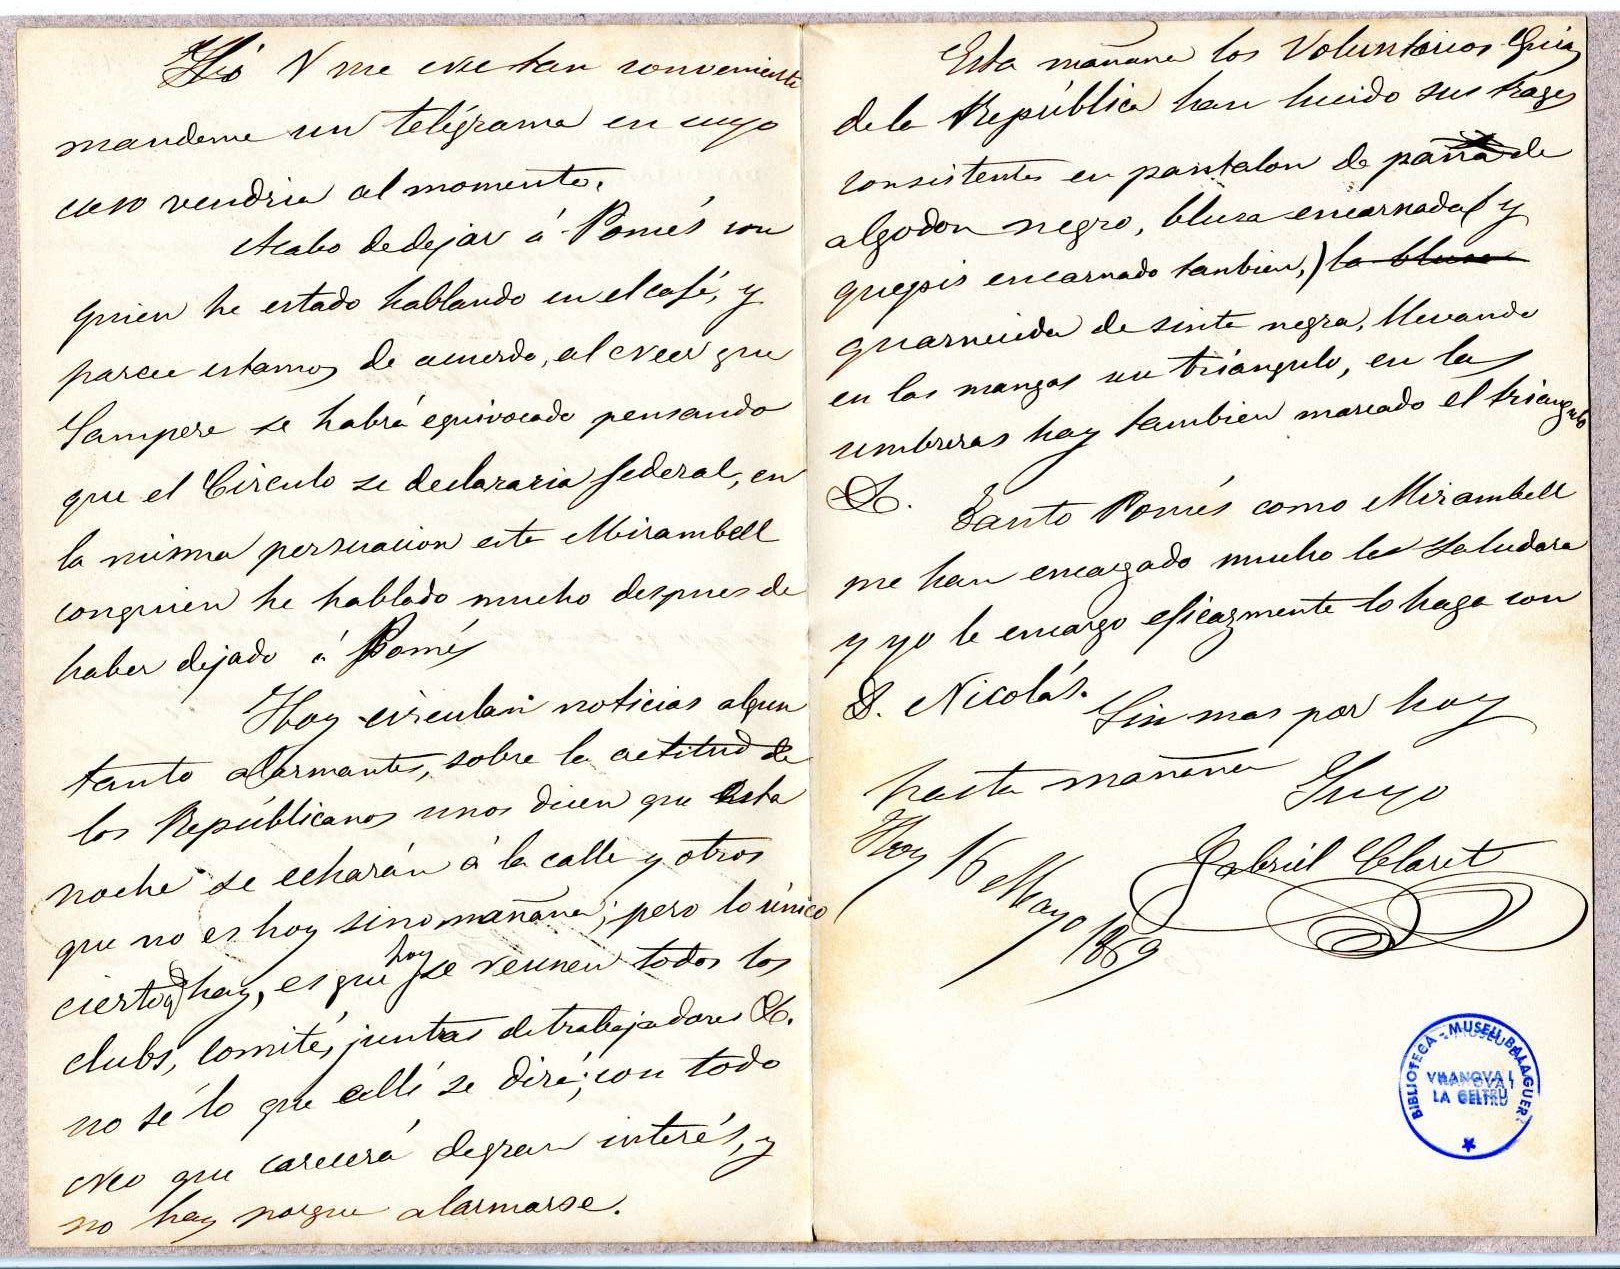 Si V me cree tan conveniente
mandeme un telégrama en cuyo
caso vendria al momento.
Acabo de dejar á Pomés con
quien he estado hablando en el café, y
parece estamos de acuerdo, al creer que
Sampere se habrá equivocado pensando
que el Circulo se declararia federal, en
la misma persuacion está Mirambell
conquien he hablado mucho despues de
haber dejado á Pomés
Hoy circulan noticias algun
tanto alarmantes, sobre la actitud de
los Repúblicanos unos dicen que esta
noche se echarán á la calle y otros
que no es hoy sino mañana; pero lo único
cierto q hay, es que hoy se reunen todos los
clubs, comités, juntas de trabajadores &.
no sé lo que allí se dirá; con todo
creo que carecerá de gran interés, y
no hay porque alarmarse.
Esta mañana los Voluntarios Guias
de la República han lucido sus trages
consistentes en pantalon de paña de
algodon negro, blusa encarnada (y
quepis encarnado tanbien,) la blusa
guarnecida de sinta negra, llevando
en las mangas un triángulo, en las
umbreras hay tambien marcado el triangulo
&.
Tanto Pomés como Mirambell
me han encargado mucho les saludara
y yo le encargo eficazmente lo haga con
D. Nicolás.
Sin mas por hoy
hasta mañana
Suyo
Gabriel Claret
Hoy 16 Mayo 1869
BIBLIOTECA - MUSEU BALAGUER
VILANOVA I
LA GELTRÚ